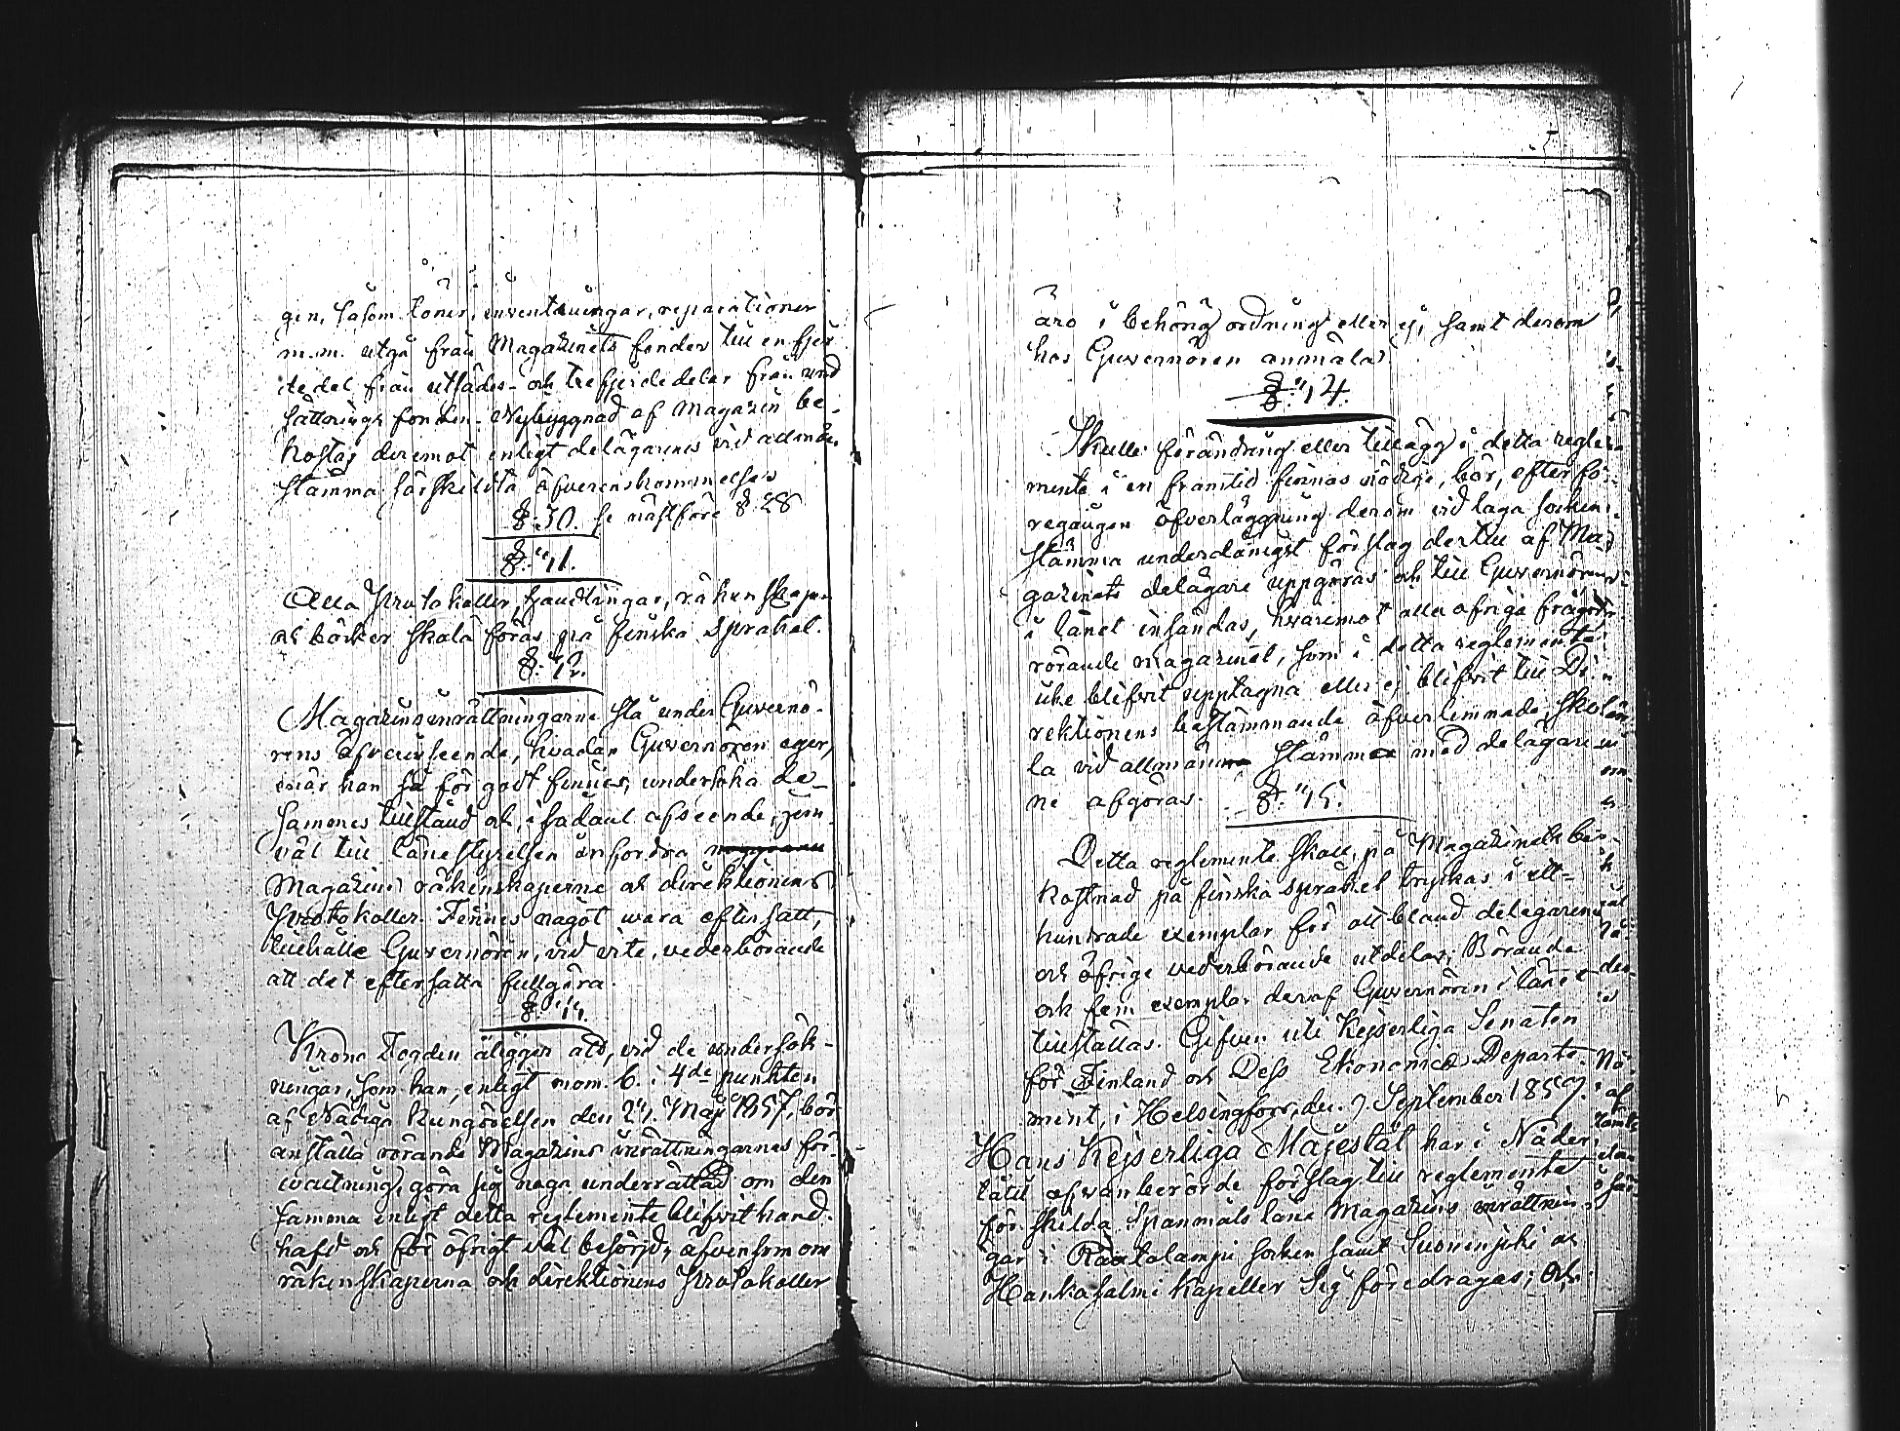 gen, såsom löner, inventeringar, reparationer
m.m. utgå från Magazinets fonder till en fjer-
dedel från utsädes- och trefjerdedelar från und
sättnings fonden. Nybyggnad af magazin be-
kostas deremot enligt delägarenes vid allmän
stämma särskildta öfverenskommelse.
§. 30. se nästföre §. 28
§. 11.
Alla Protokoller, handlingar, räkenskaper
och böcker skola föras på finska språket.
§. 12.
Magazinsinrättningarne stå under Guvernö-
rens öfverinseende, hvadan Guvernören eger,
när han så för godt finner, undersöka de-
sammes tillstånd och, i sådant afseende, jem-
väl till länestyrelsen infordra
Magazins räkenskaperne och direktionens
Protokoller. Finnes något vara eftersatt,
tillhålle Guvernören, vid vite, vederbörande
att det eftersatta fullgöra.
§. 13.
Krono Fogden åligger att, vid de undersök-
ningar, som han, enligt mom. 6. i 4de punkten
af Nådiga Kungörelsen den 2 Maj 1857, bör
anställa rörande Magazins inrättningarnes för-
valtning, göra sig noga underrättad om den
samma enligt detta reglemente blifvit hand-
hafd och för öfrigt väl besörjd, äfvensom om
räkenskaperna och direktionens Protokoller
äro i behörig ordning eller ej, samt derom
hos Guvernören anmäla.
§. 14.
Skulle förändring eller tillägg i detta regle-
mente i en framtid finnas nödige, bör, efter fö-
regången öfverläggning derom vid laga socken-
stämma underdånigst förslag dertill af Ma-
gazinets delägare uppgöras och till Guvernören
i länet insändas, hvaremot alla öfriga frågor
rörande magazinet, som i detta reglemente
icke blifvit upptagna eller ej blifvit till Di-
rektionens bestämmande öfverlemnade, sko-
la vid allmän stämma med delägare
ne afgöras.
§. 15.
Detta reglemente skall på Magazinets be-
kostnad på finska språket tryckas i ett-
hundrade exemplar för att bland delägarene
och öfrige vederbörande utdelas; Börande
och fem exemplar deraf Guvernören i länet
tillställas. Gifven uti Kejserliga Senaten
för Finland och Dess Ekonomie Departe-
ment, i Helsingfors, den 7 September 1859.
Hans Kejserliga Majestät har i Nåder
låtit ofvanberörde förslag till reglemente
för skilda Spanmåls låne Magazins inrättnin-
gar i Rautalampi socken samt Suonenjoki och
Hankasalmi Kapeller Sig föredragas; och